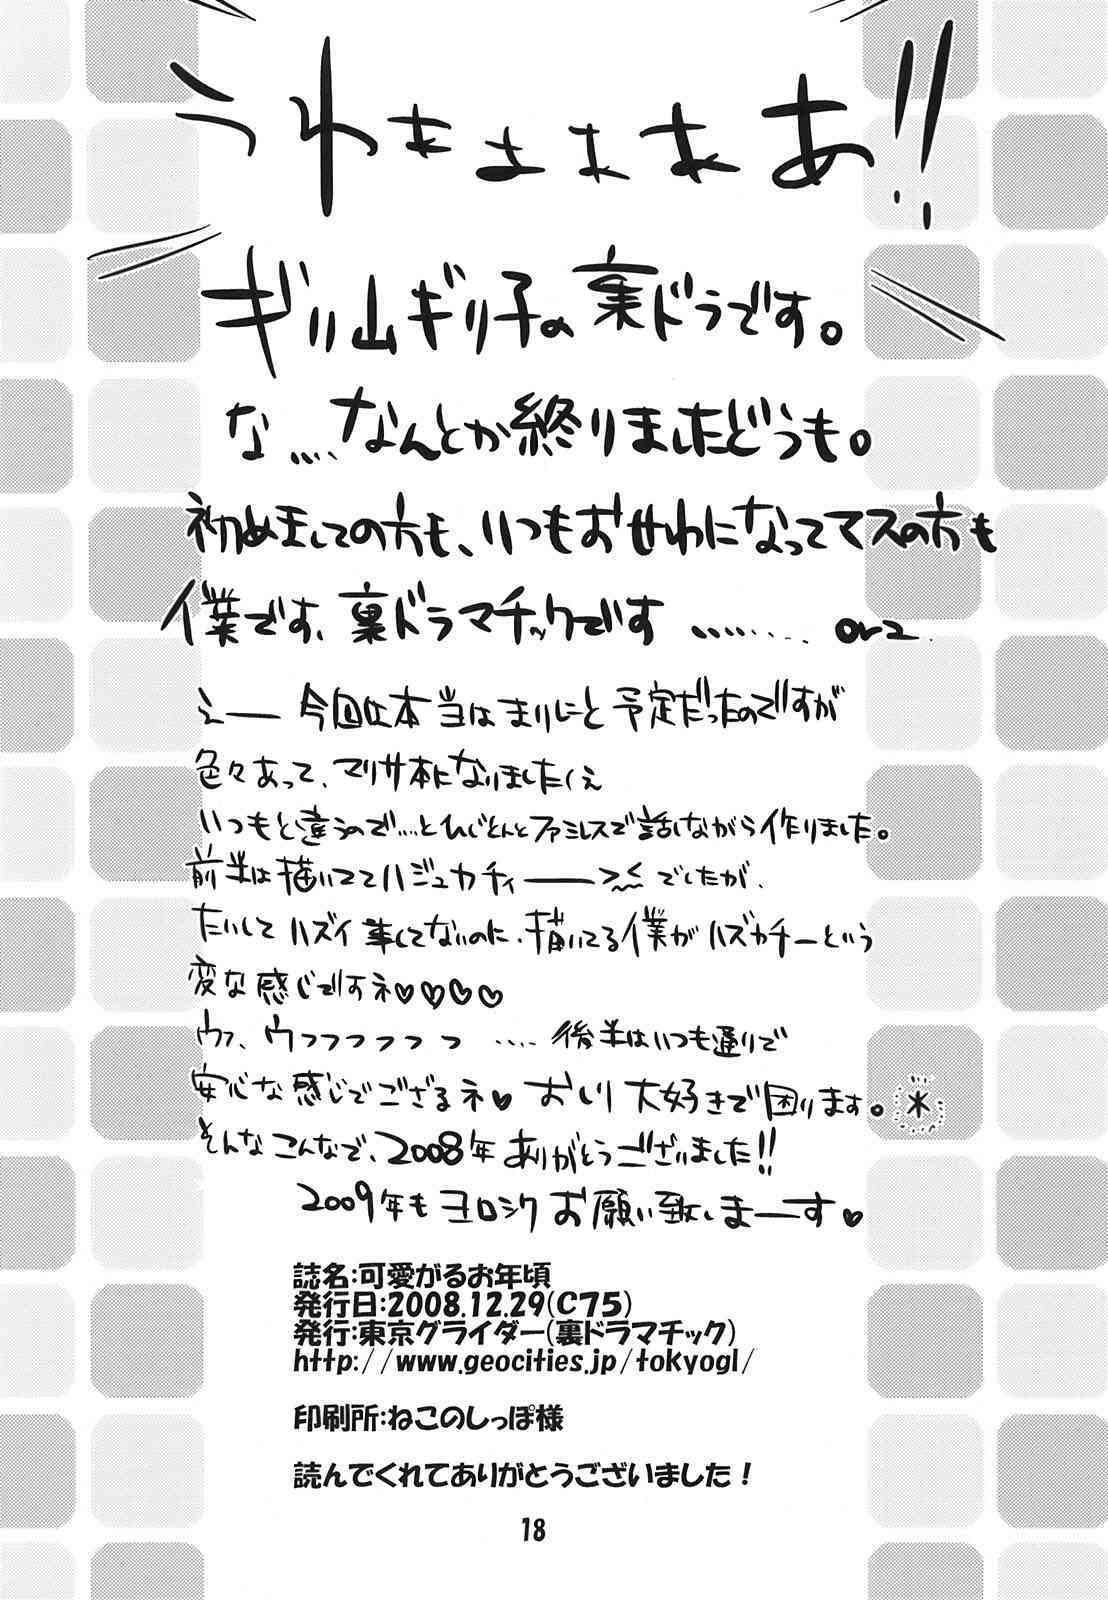 うわぁぁぁぁあ!!
ギリ山ギリ子の裏ドラです。
な....なんとか終りましたどうも。
初めましての方も、いつもおせわになってマスの方も
僕です、裏ドラマチックです ......... orz..
えー 今回は本当はまりにと予定だったのですが
色々あって、マリサ本になりましたくぇ
いつもと違うので....とひじとんとファミレスで話しながら作りました。
前半は描いててハジュカチィーーでしたが、
たいしてハズイ事してないのに、描いてる僕がハズカチーという
変な感じですネ♡♡♡♡
ウフ、ウフフフフフフ .... 後半はいつも通りで
安心な感じでござるネ♡ おしり大好きで困ります。*
そんなこんなで、2008年ありがとうございました!!
2009年もヨロシクお願い致しまーす♡
誌名:可愛がるお年頃
発行日:2008.12.29(C75)
発行:東京グライダー(裏ドラマチック)
http://www.geocities.jp/tokyogl/
印刷所:ねこのしっぽ様
読んでくれてありがとうございました!
18